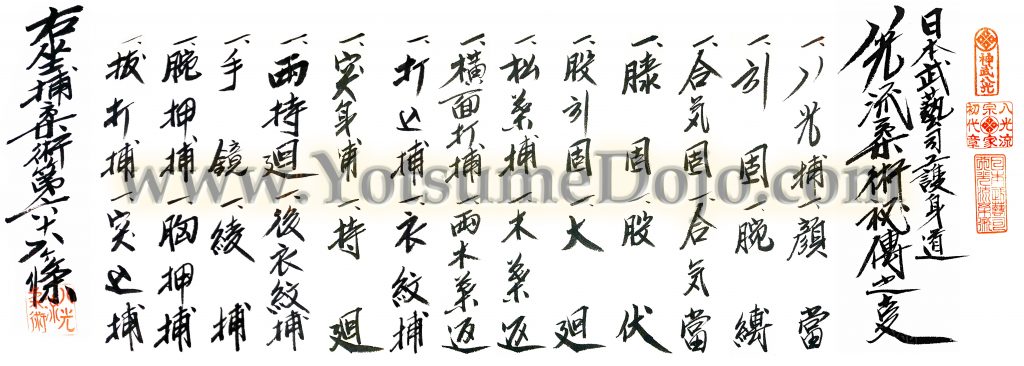 神武八光
八光流
宗家
初代章
日本武藝司護身道
八光流柔術秘傳之叓
一、八光捕 一、顔當
一、引固 一、腕縛
一、合気固 一、合気當
一、膝固 一、股伏
一、股引固 一、大廻
一、松葉捕 一、木葉返
一、横面打捕 一、両木葉返
一、打込捕 一、衣紋捕
一、突身捕 一、持廻
一、両持廻 一、後衣紋捕
一、手鏡 一、綾捕
一、腕押捕 一、胸押捕
一、抜打捕 一、突込捕
右坐捕柔術第二十六ヶ條
八光流柔術
www.YotsumeDojo.com